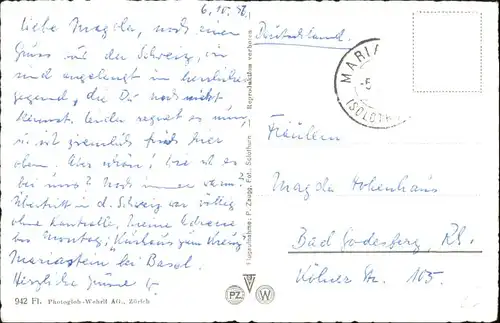 6.10.56.
Liebe Magda, noch einen
Gruss aus der Schweiz, wir
sind angelangt in herrlicher
Gegend, die Du noch nicht
kennst. Leider regnet es nun
u. ist ziemlich frisch hier
oben. Aber schön! Wie ist es
bei uns? Noch immer warm?
Übertritt in d. Schweiz war völlig
ohne Kontrolle, meine Adresse
bis Montag: "Kurhaus zum Kreuz"
Mariastein bei Basel.
Herzliche Grüsse
942 Fl. Photoglob-Wehrli AG., Zürich
Flugaufnahme: P. Zaugg, Fot. Solothurn Reproduktion verboten
PZ W
Deutschland.
MARIA
-5
(SOLOTH
Fräulein
Magda Hohenhaus
Bad Godesberg, Rh.
Kölner Str. 105.